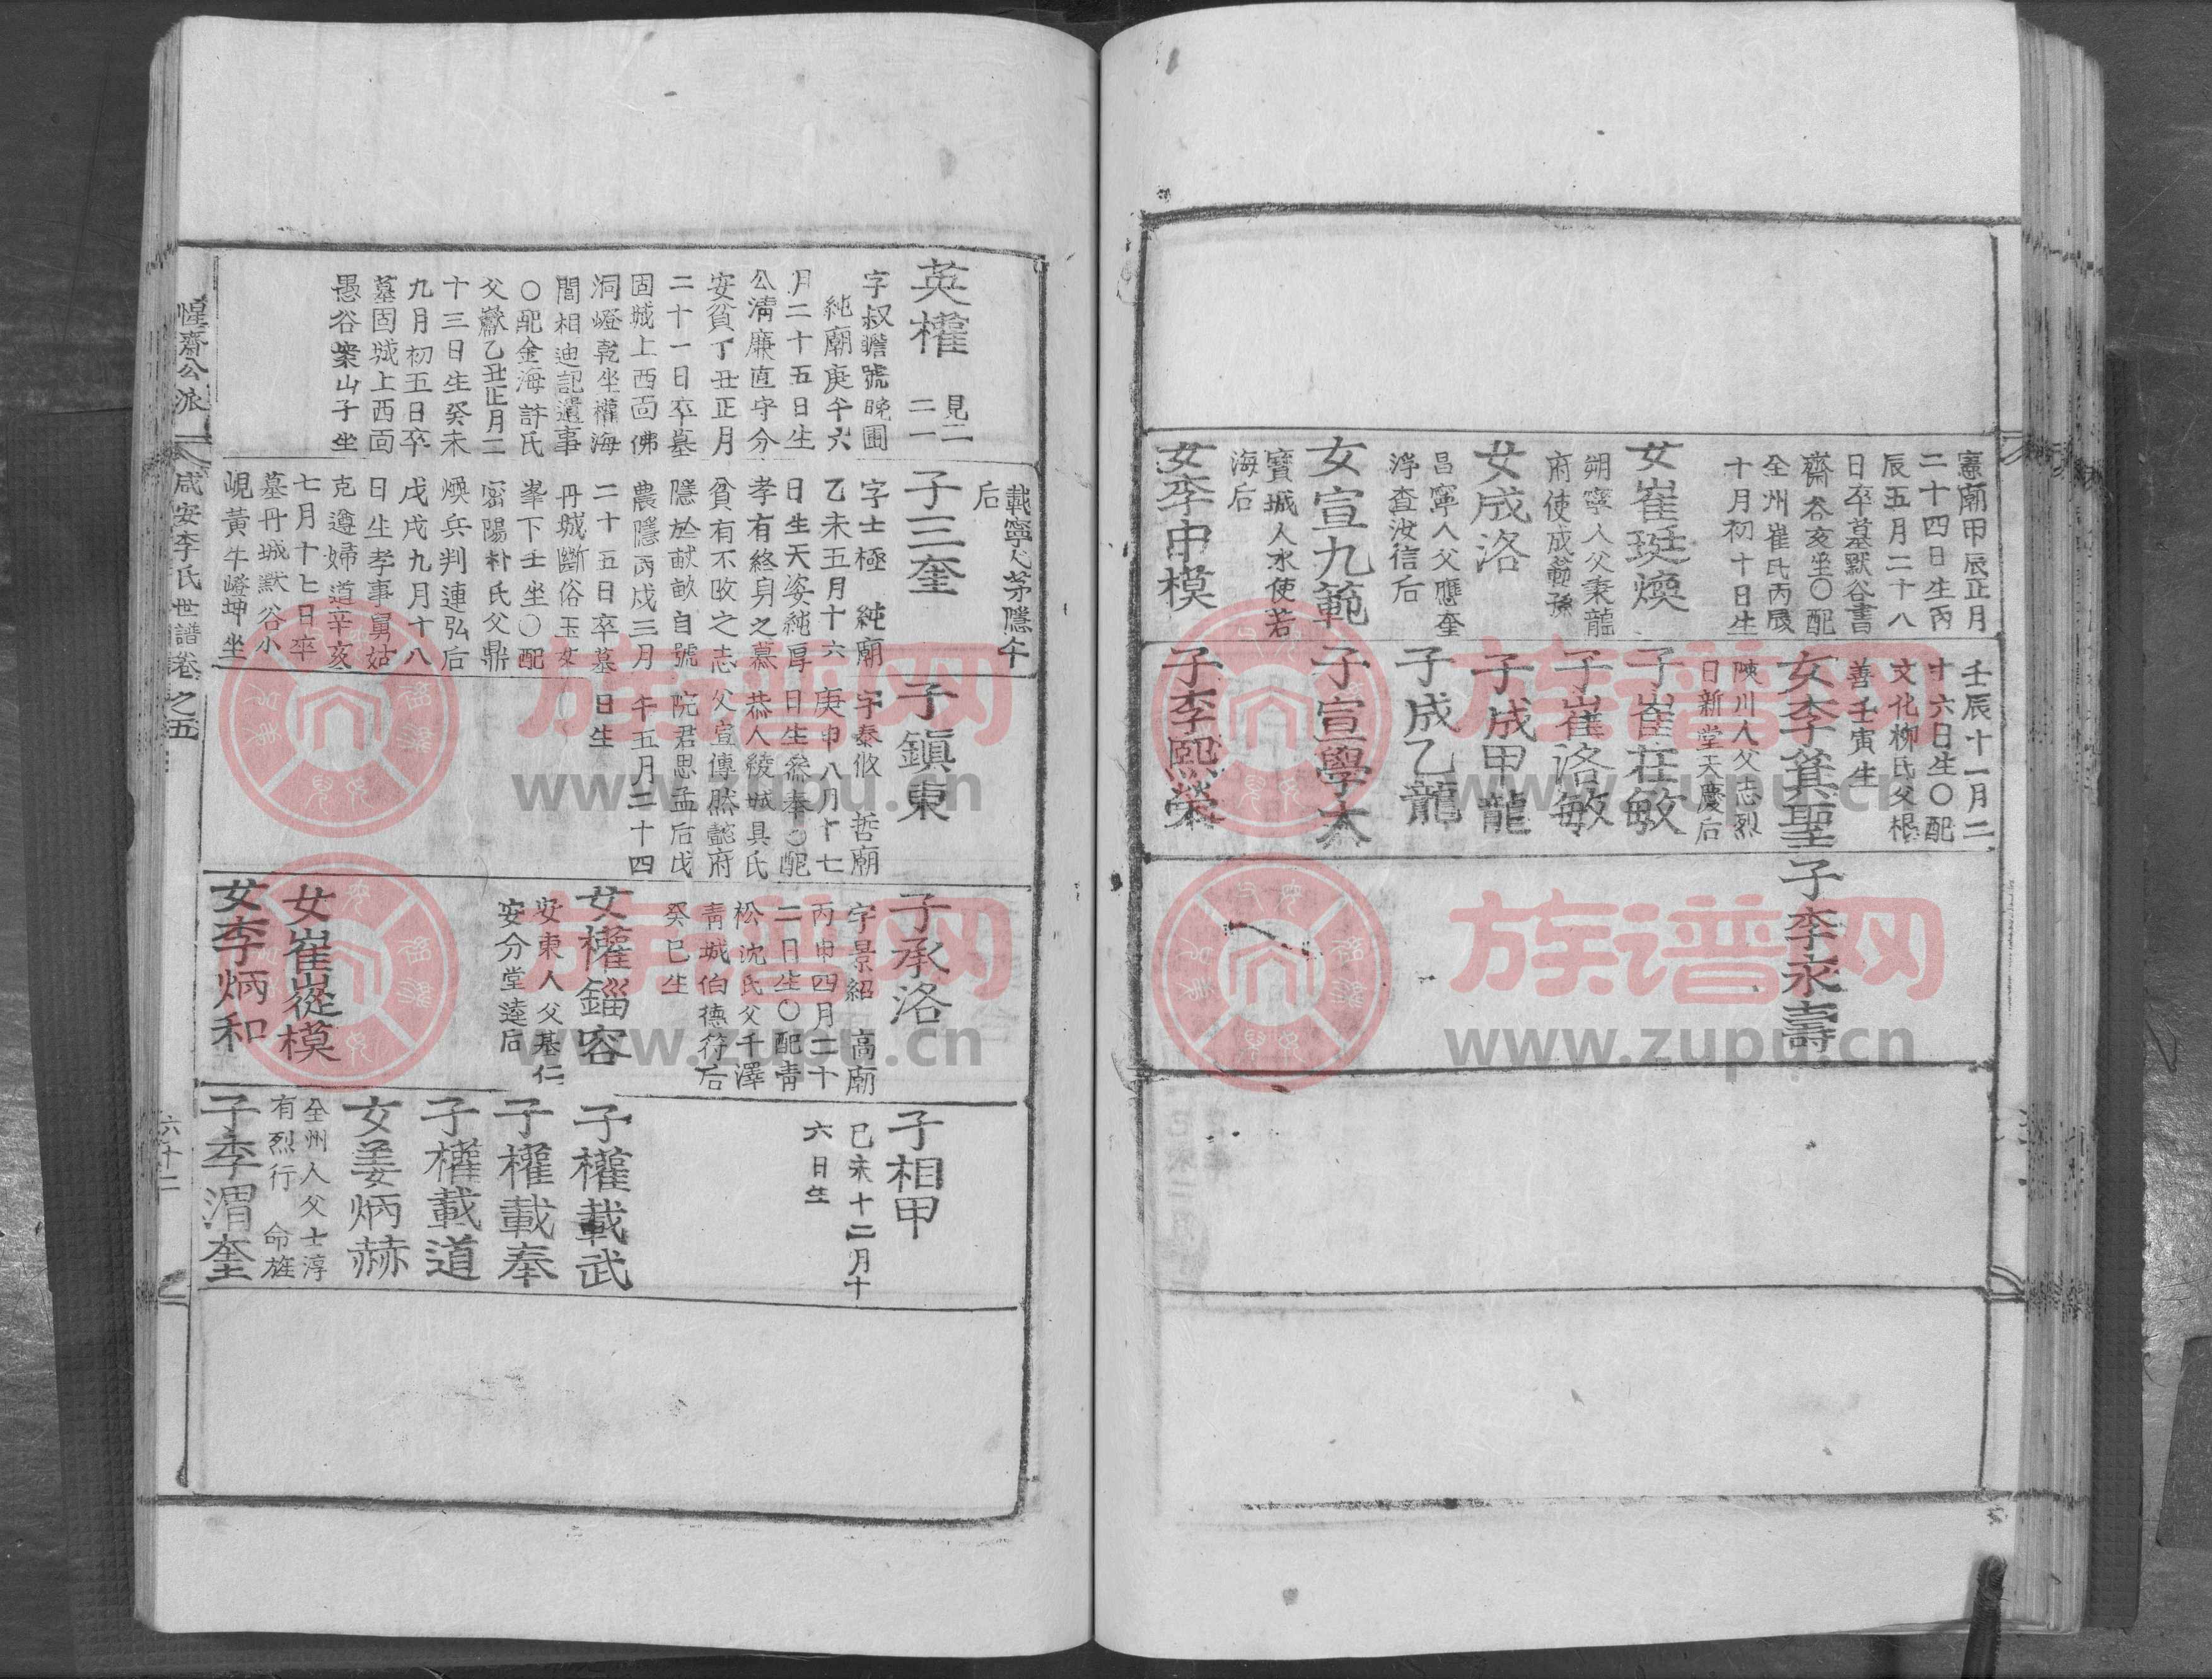 憲廟甲辰正月
二十四日生丙
辰五月二十八
日卒墓默谷書
齋谷亥坐〇配
全州崔氏丙辰
十月初十日生
女崔珽煥
朔寧人父秉龍
府使成範孫
女成洛
昌寧人父應奎
浮查汝信后
女宣九範
寶城人水使若
海后
女李中模
壬辰十一月二
十六日生〇配
文化柳氏父根
善壬寅生
女李箕聖
陝川人父志烈
日新堂天慶后
子崔在敏
子崔洛敏
子成甲龍
子成乙龍
子宣學太
子李熙榮
子李永壽
英權
見二
二一
字叔瞻號晚圃
純廟庚午六
月二十五日生
公淸廉直守分
安貧丁丑正月
二十一日卒墓
固城上西面佛
洞嶝乾坐權海
閭相迪記遺事
〇配金海許氏
父嶽乙丑正月二
十三日生癸未
九月初五日卒
墓固城上西面
愚谷案山子坐
載寧人茅隱午
后
子三奎
字士極 純廟
乙未五月十六
日生天姿純厚
孝有終身之慕
貧有不改之志
隱於畎畝自號
農隱丙戌三月
二十五日卒墓
丹城斷俗玉女
峯下壬坐〇配
密陽朴氏父鼎
煥兵判連弘后
戊戌九月十八
日生孝事舅姑
克遵婦道辛亥
七月十七日卒
墓丹城默谷小
峴黃牛嶝坤坐
子鎭東
字泰攸 哲廟
庚申八月十七
日生參奉〇配
恭人綾城具氏
父宣傳然懿府
院君思孟后戊
午五月二十四
日生
子承洛
字景紹 高廟
丙申四月二十
二日生〇配靑
松沈氏父千澤
靑城伯德符后
癸巳生
女權錙容
安東人父基仁
安分堂逵后
女崔嵸模
女李炳和
子相甲
己未十二月十
六日生
子權載武
子權載奉
子權載道
女姜炳赫
全州人父士淳
有烈行 命旌
子李渭奎
惺齋公派
咸安李氏世譜卷之五
六十二
族谱网
www.zupu.cn
族谱网
www.zupu.cn
族谱网
www.zupu.cn
族谱网
www.zupu.cn